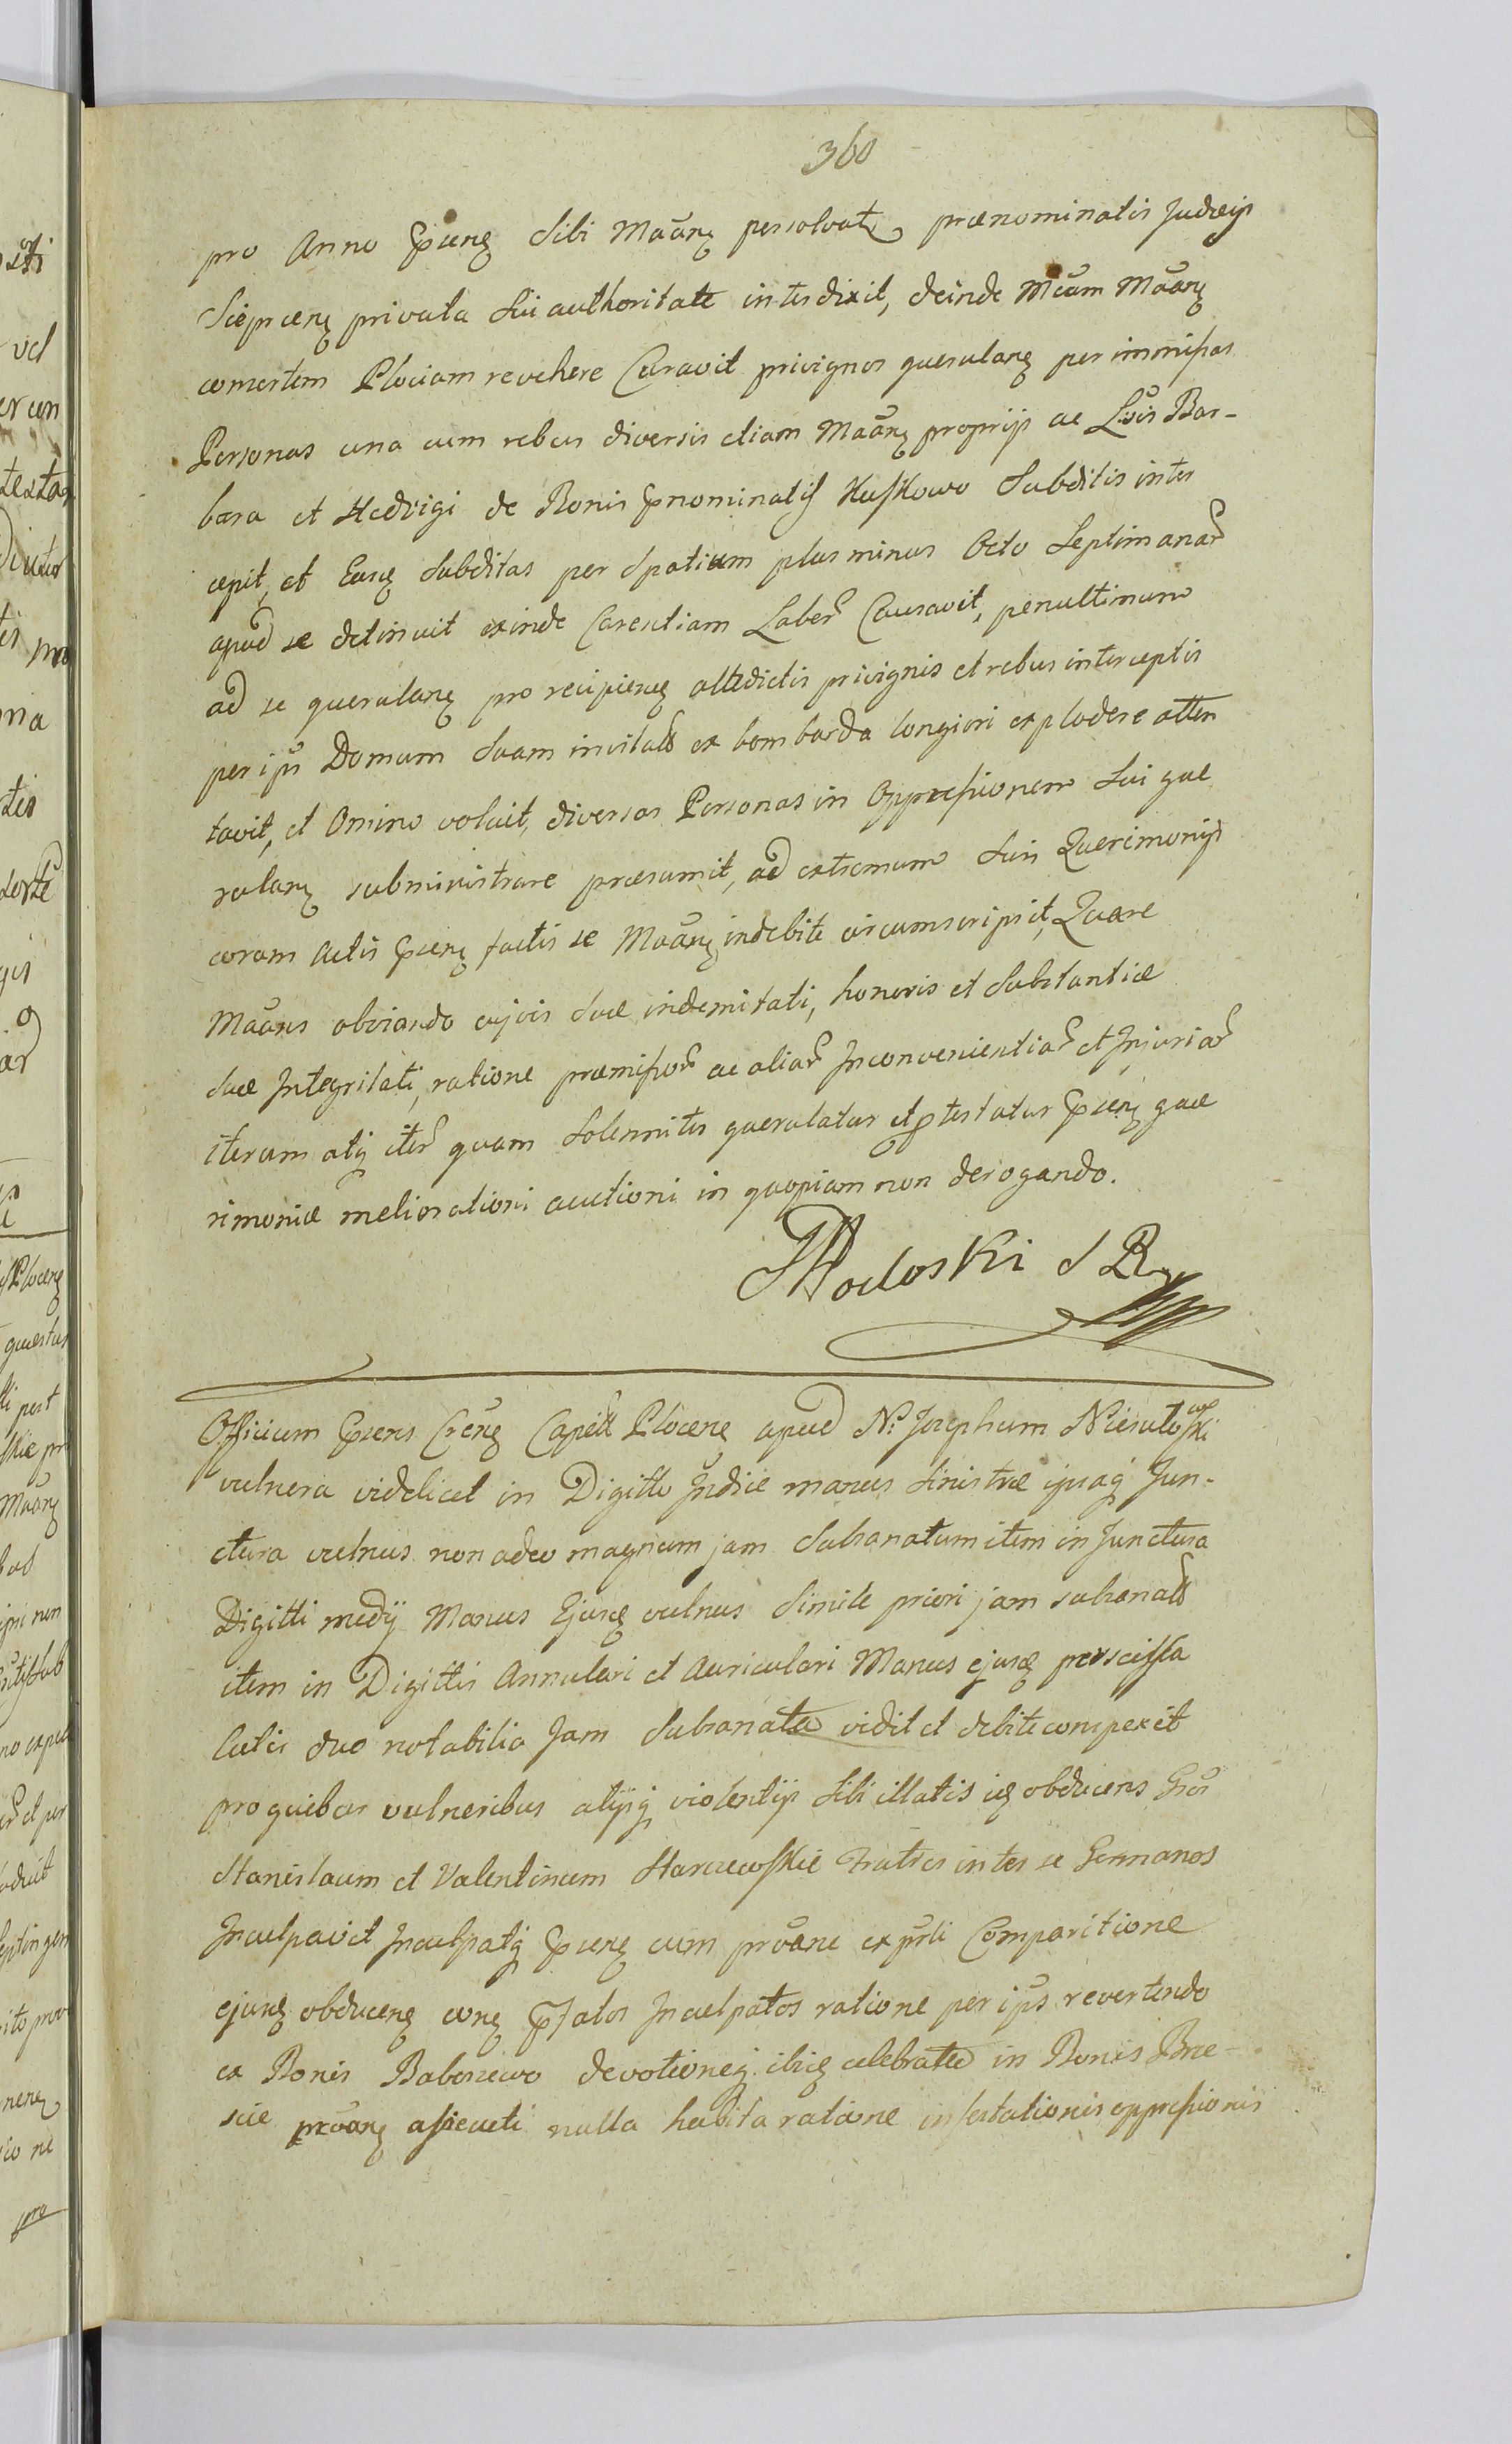 360
pro Anno Pñenʒ Sibi Maãnʒ persolvatʒ prænominatis Judæijs
Siepcienʒ privata Sui authoritate interdixit, deinde Mcam Maãnʒ
comortem Plociam revehere Curavit privignos querulanʒ per immissas
Personas una cum rebus diversis etiam Maãnʒ proprijs ac Lois Bar-
bara et Hedvigi de Bonis Pnominatis Kuskowo Subditis inter
cepit, et Easq Subditas per Spatium plus minus Octo Septimanar
apud se detinuit exinde Carentiam Labor Causavit, penultimum
ad se querulanʒ pro recipienʒ attedictis privignis et rebus interceptis
per ips Domum Suam invitato ex bombarda longiori explodere atten
tavit, et Omino voluit, diversas Personas in Oppressionem Sui que
rulanʒ subministrare præsumit, ad extremum Suis Querimonijs
coram Actis Pñenʒ factis se Maãnʒ indebite circumscripsit, Quare
Maãns obviando cujvis Suæ indemitati, honoris et Substantiæ
Suæ Integritati, ratione præmissor ac aliar Inconvenientiar et Injuriar
iterum atq iter quam Solenniter querulatur et ptestatur Pñenʒ que
rimoniæ meliorationi auctioni in quopiam non derogando.
Modoski S R
Officium Pñens Crenʒ Capitt Plocenʒ apud N: Josephum Niesuło wski
vulnera videlicet in Digitto Indice manus Sinistræ ipsaq Jun-
ctura vulnus non adeo magnum jam Subsanatum item in Junctura
Digitti medij Manus Ejusq vulnus Simile priori jam subsanato
item in Digittis Annulari et Auriculari Manus ejusq perscissa
Cutis duo notabilia Jam Subsanata vidit et debite conspexit
pro quibus vulneribus alijsq violentijs Sibi illatis iq obducens Gsos
Stanislaum et Valentinum Starczewskie Fratres inter se Germanos
Inculpavit Inculpatq Pñenʒ cum provane ex psti Comparitione
ejusq obducenʒ conʒ Pfatos Inculpatos ratione per ips revertendo
ex Bonis Baboszewo devotioneq ibiq celebrata in Bonis Brze-
scie provanʒ assecuti nulla habita ratione infestationis oppressionis